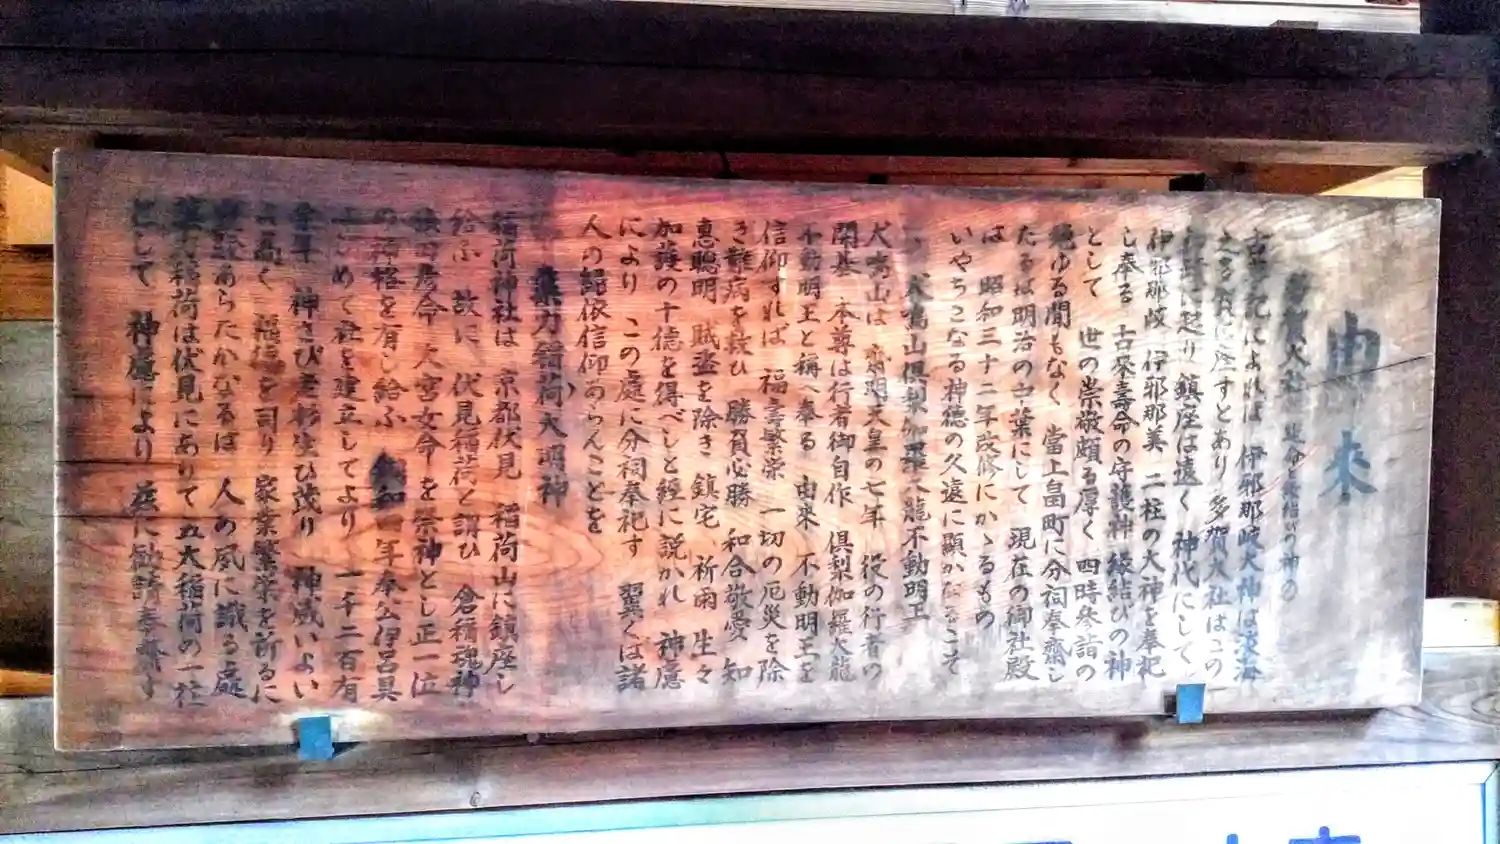 由来
多賀大社 延命長縁結びの神の
古事記によれば 伊邪那岐大神は淡海
之多賀に座すとあり 多賀大社はこの
に起り 鎮座は遠く 神代にして
伊邪那岐 伊邪那美 二柱の大神を奉祀
し奉る 古來壽命の守護神 縁結びの神
として 世の崇敬頗る厚く 四時參詣の
絶ゆる間もなく 當上畠町に分祠奉齋し
たるは明治の中葉にして 現在の御社殿
は 昭和三十二年改修にかゝるもの
いやちこなる神徳の久遠に顯かなるこそ
犬鳴山倶梨伽羅大龍不動明王
犬鳴山は 齊明天皇の七年 役の行者の
開基 本尊は行者御自作 倶梨伽羅大龍
不動明王と稱へ奉る 由来 不動明王を
信仰すれば 福壽繁栄 一切の厄災を除
き難病を救ひ 勝負必勝 和合敬愛 知
恵聰明 賊盗を除き 鎮宅、祈雨 生々
加護の十徳を得べしと經に説かれ 神慮
により この處に分祠奉祀す 翼くば諸
人の歸依信仰あらんことを
力稲荷大明神
稲荷神社は 京都伏見 稲荷山に鎮座し
給ふ 故に 伏見稲荷と謂ひ 倉稲魂神
猿田彦命 大宮女命を祭神とし正一位
の神格を有し給ふ 和四年奉公伊呂具
はじめて社を建立してより 一千二百有
余年 神さび老杉生ひ茂り 神威いよい
よ高く 福徳を司り 家業繁栄を祈るに
霊験あらたかなるは 人の夙に識る處
稲荷は伏見にありて 五大稲荷の一社
にして 神慮により 茲に勧請奉齋す